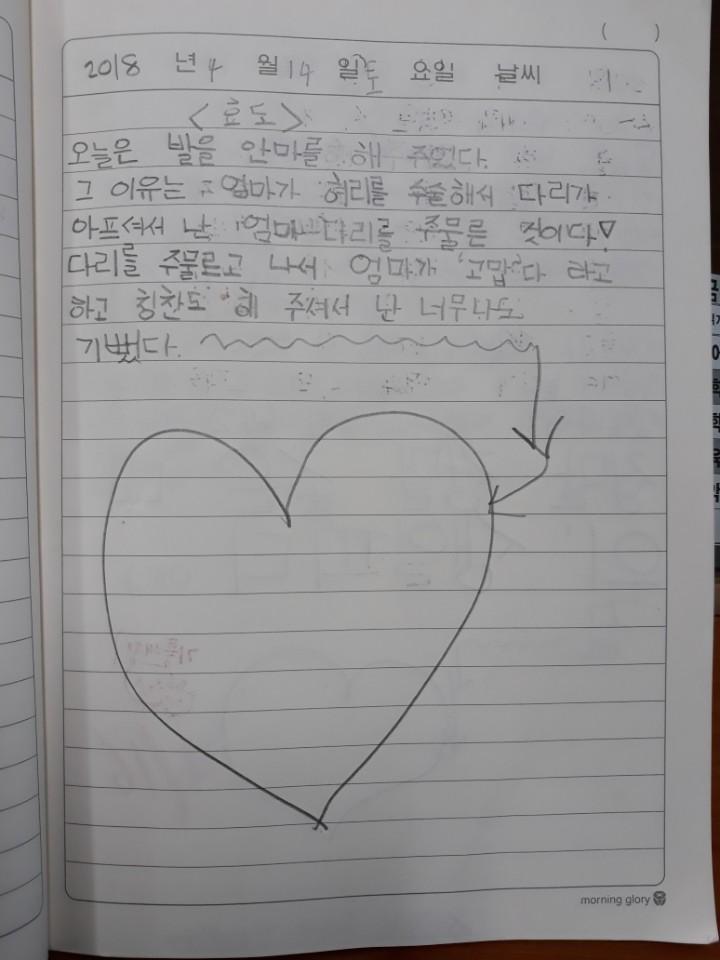 ( )
2018 년 4 월 14 일 토 요일 날씨
<효도>
오늘은 발을 안마를 해 주었다.
그 이유는 엄마가 허리를 수술해서 다리가
아프셔서 난 엄마 다리를 주물른 것이다!
다리를 주물르고 나서 엄마가 '고맙'다 라고
하고 칭찬도 해 주셔서 난 너무나도
기뻤다.
morning glory